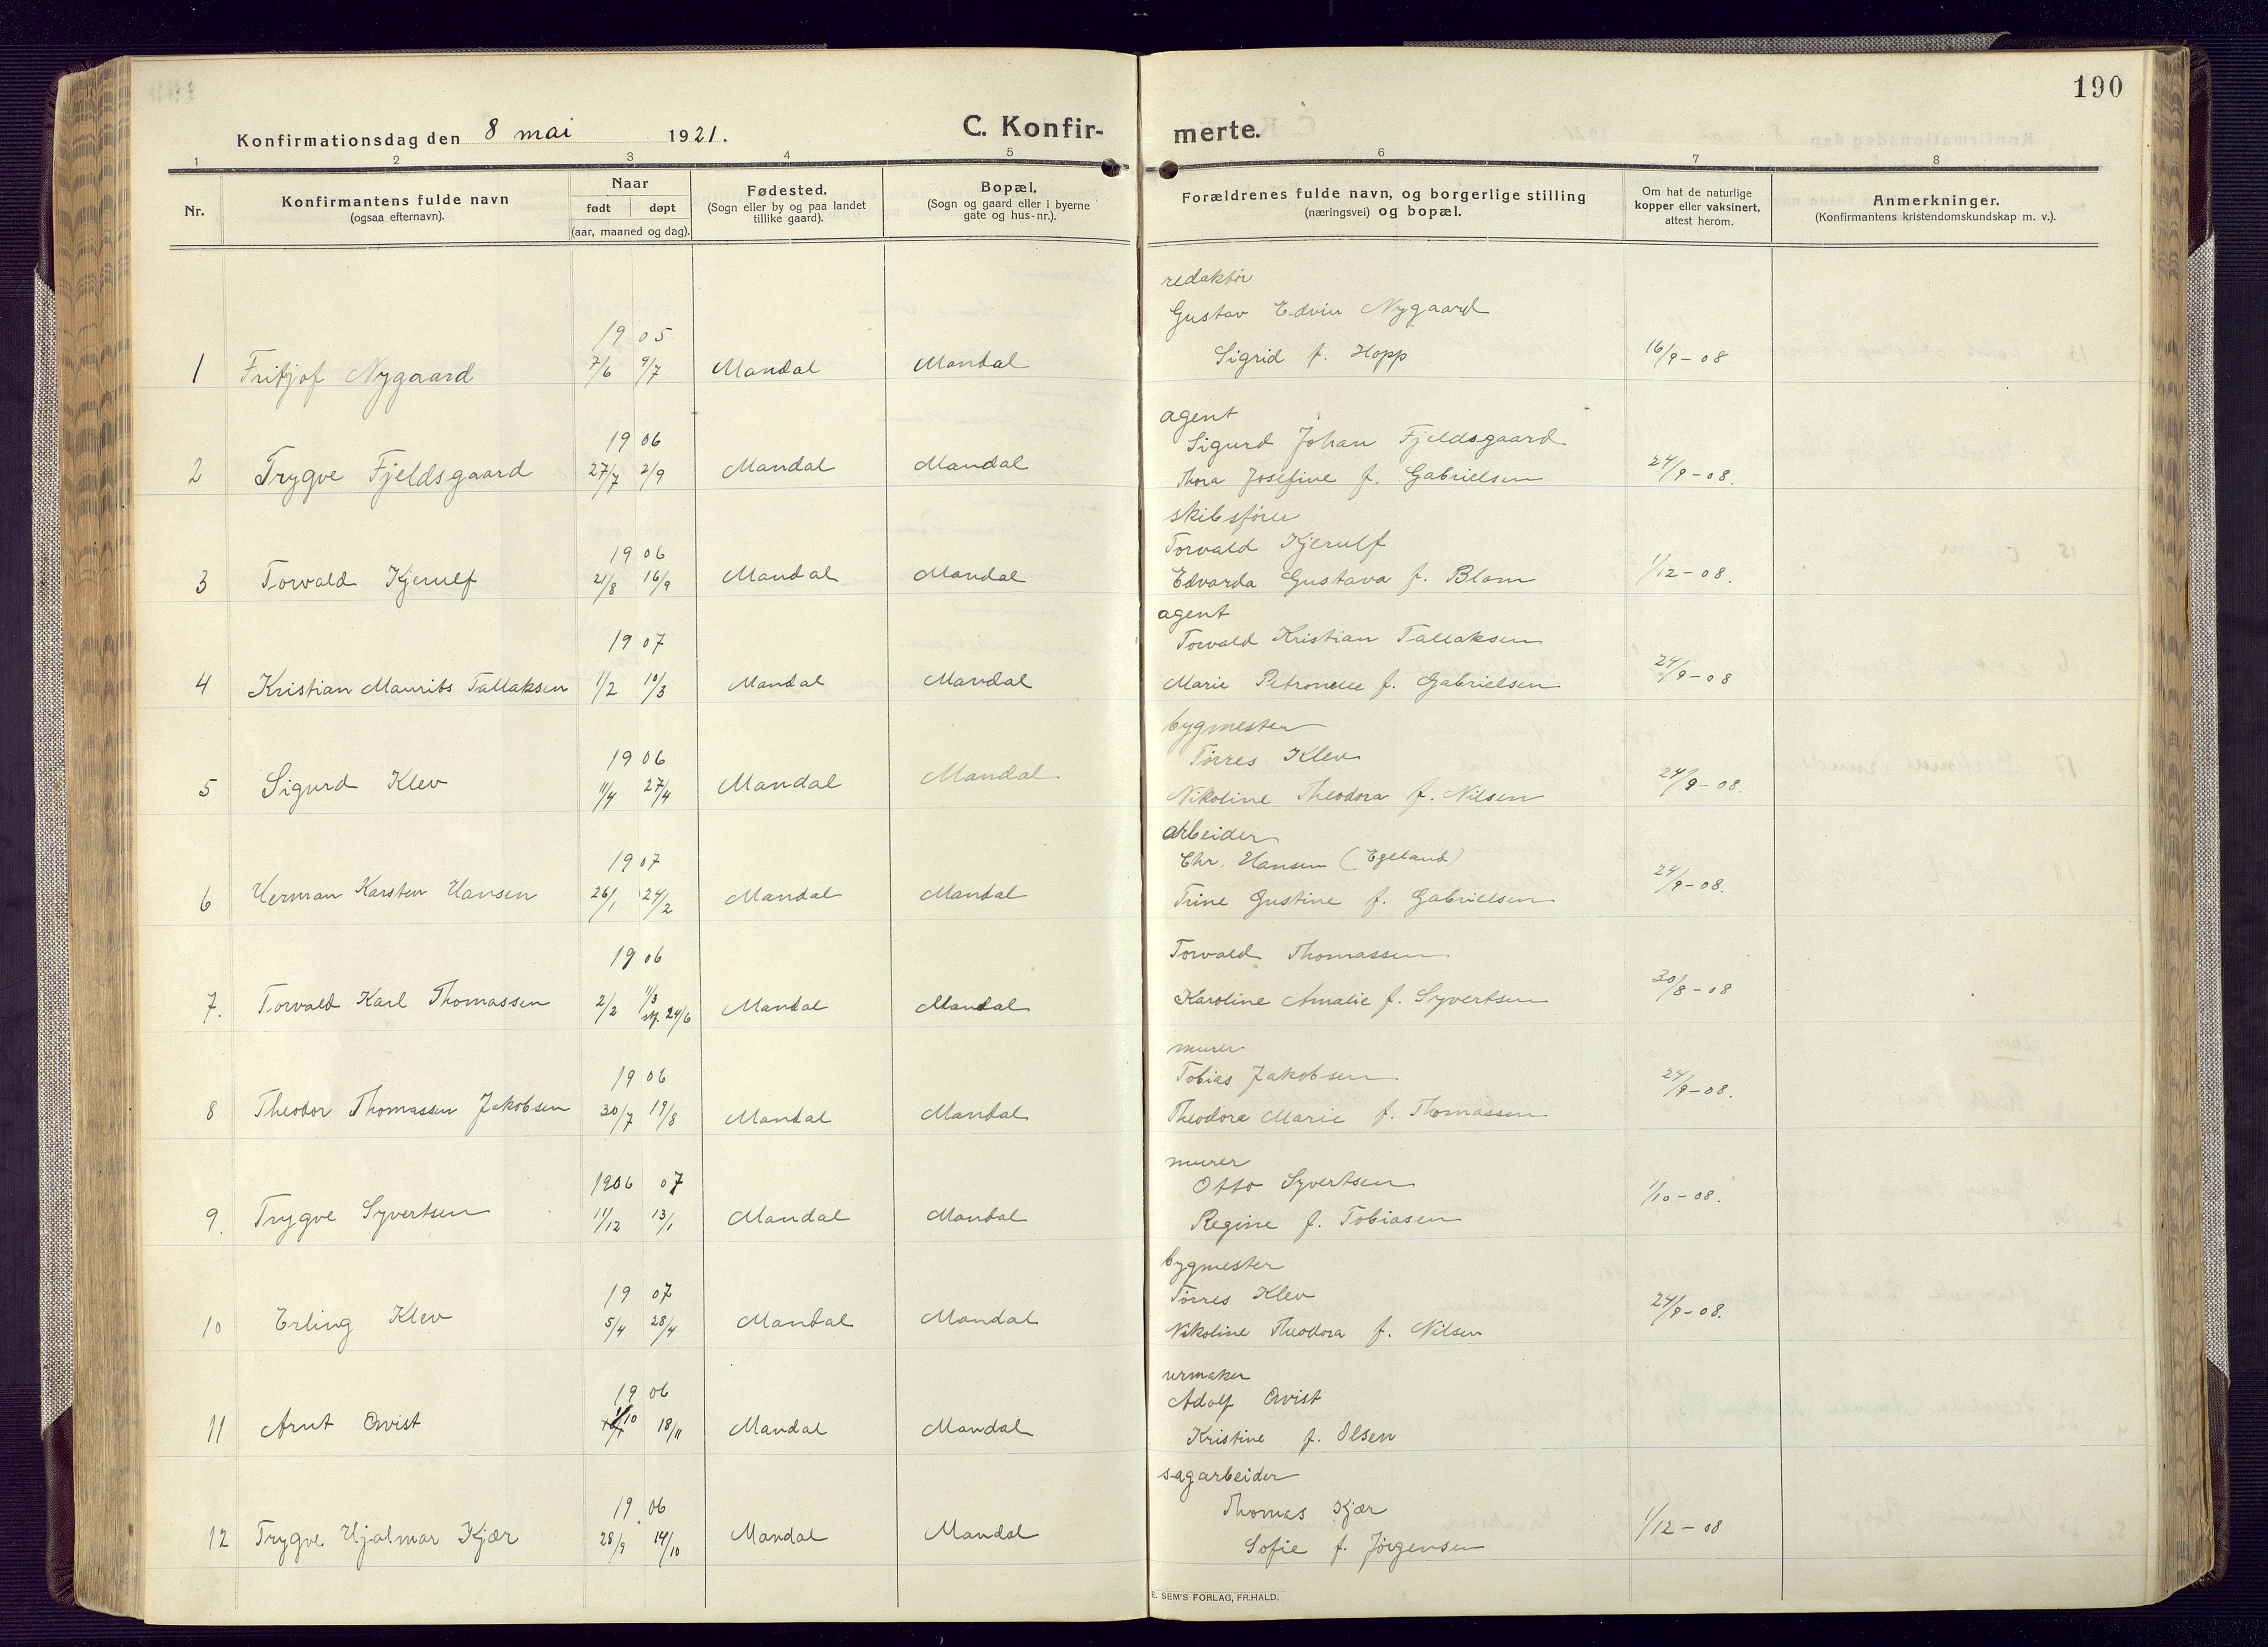 190
Konfirmationsdag den 8 mai 1921. C. Konfirmerte.
1 2 3 4 5 6 7 8
Nr.
Konfirmantens fulde navn
(ogsaa efternavn).
Naar
født døpt
(aar, maaned og dag).
Fødested.
(Sogn eller by og paa landet
tillike gaard).
Bopæl.
(Sogn og gaard eller i byerne
gate og hus-nr.).
Forældrenes fulde navn, og borgerlige stilling
(næringsvei) og bopæl.
Om hat de naturlige
kopper eller vaksinert,
attest herom.
Anmerkninger.
(Konfirmantens kristendomskundskap m. v.).
redaktør
Gustav Edvin Nygaard
19 05
1 Fritjof Nygaard 7/6 9/7 Mandal Mandal Sigrid f. Hopp 16/9-08
agent
19 06 Sigurd Johan Fjeldsgaard
2 Trygve Fjeldsgaard 27/7 2/9 Mandal Mandal Thora Josefine f. Gabrielsen 24/9-08.
skibsfører
19 06 Torvald Kjerulf
3 Torvald Kjerulf 21/8 16/9 Mandal Mandal Edvarda Gustava f. Blom 1/12-08.
agent
19 07 Torvald Kristian Tallaksen
4 Kristian Maurits Tallaksen 1/2 10/3 Mandal Mandal Marie Petronelle f. Gabrielsen 24/9-08
bygmester
19 06 Tørres Klev
5 Sigurd Klev 11/4 27/4 Mandal Mandal Nikoline Theodora f. Nilsen 24/9-08.
arbeider
19 07 Chr. Hansen (Egeland)
6 Herman Karsten Hansen 26/1 24/2 Mandal Mandal Trine Gustine f. Gabrielsen 24/9-08.
19 06 Torvald Thomassen
7. Torvald Karl Thomassen 2/2 1/3 24/6 Mandal Mandal Karoline Amalie f. Syvertsen 30/8-08
murer
19 06 Tobias Jakobsen
8 Theodor Thomassen Jakobsen 30/7 19/8 Mandal Mandal Theodora Marie f. Thomassen 24/9-08.
murer
1906 07 Otto Syvertsen
9. Trygve Syvertsen 11/12 13/1 Mandal Mandal Regine f. Tobiasen 1/10-08.
bygmester
19 07 Tørres Klev
10 Erling Klev 5/4 28/4 Mandal Mandal Nikoline Theodora f. Nilsen 24/9-08.
urmaker
19 06 Adolf Qvist
11 Arnt Qvist 1/10 18/11 Mandal Mandal Kristine f. Olsen
sagarbeider
19 06 Thomas Kjær
12 Trygve Hjalmar Kjær 28/9 14/10 Mandal Mandal Sofie f. Jörgensen 1/12-08
E. SEM'S FORLAG, FR.HALD.